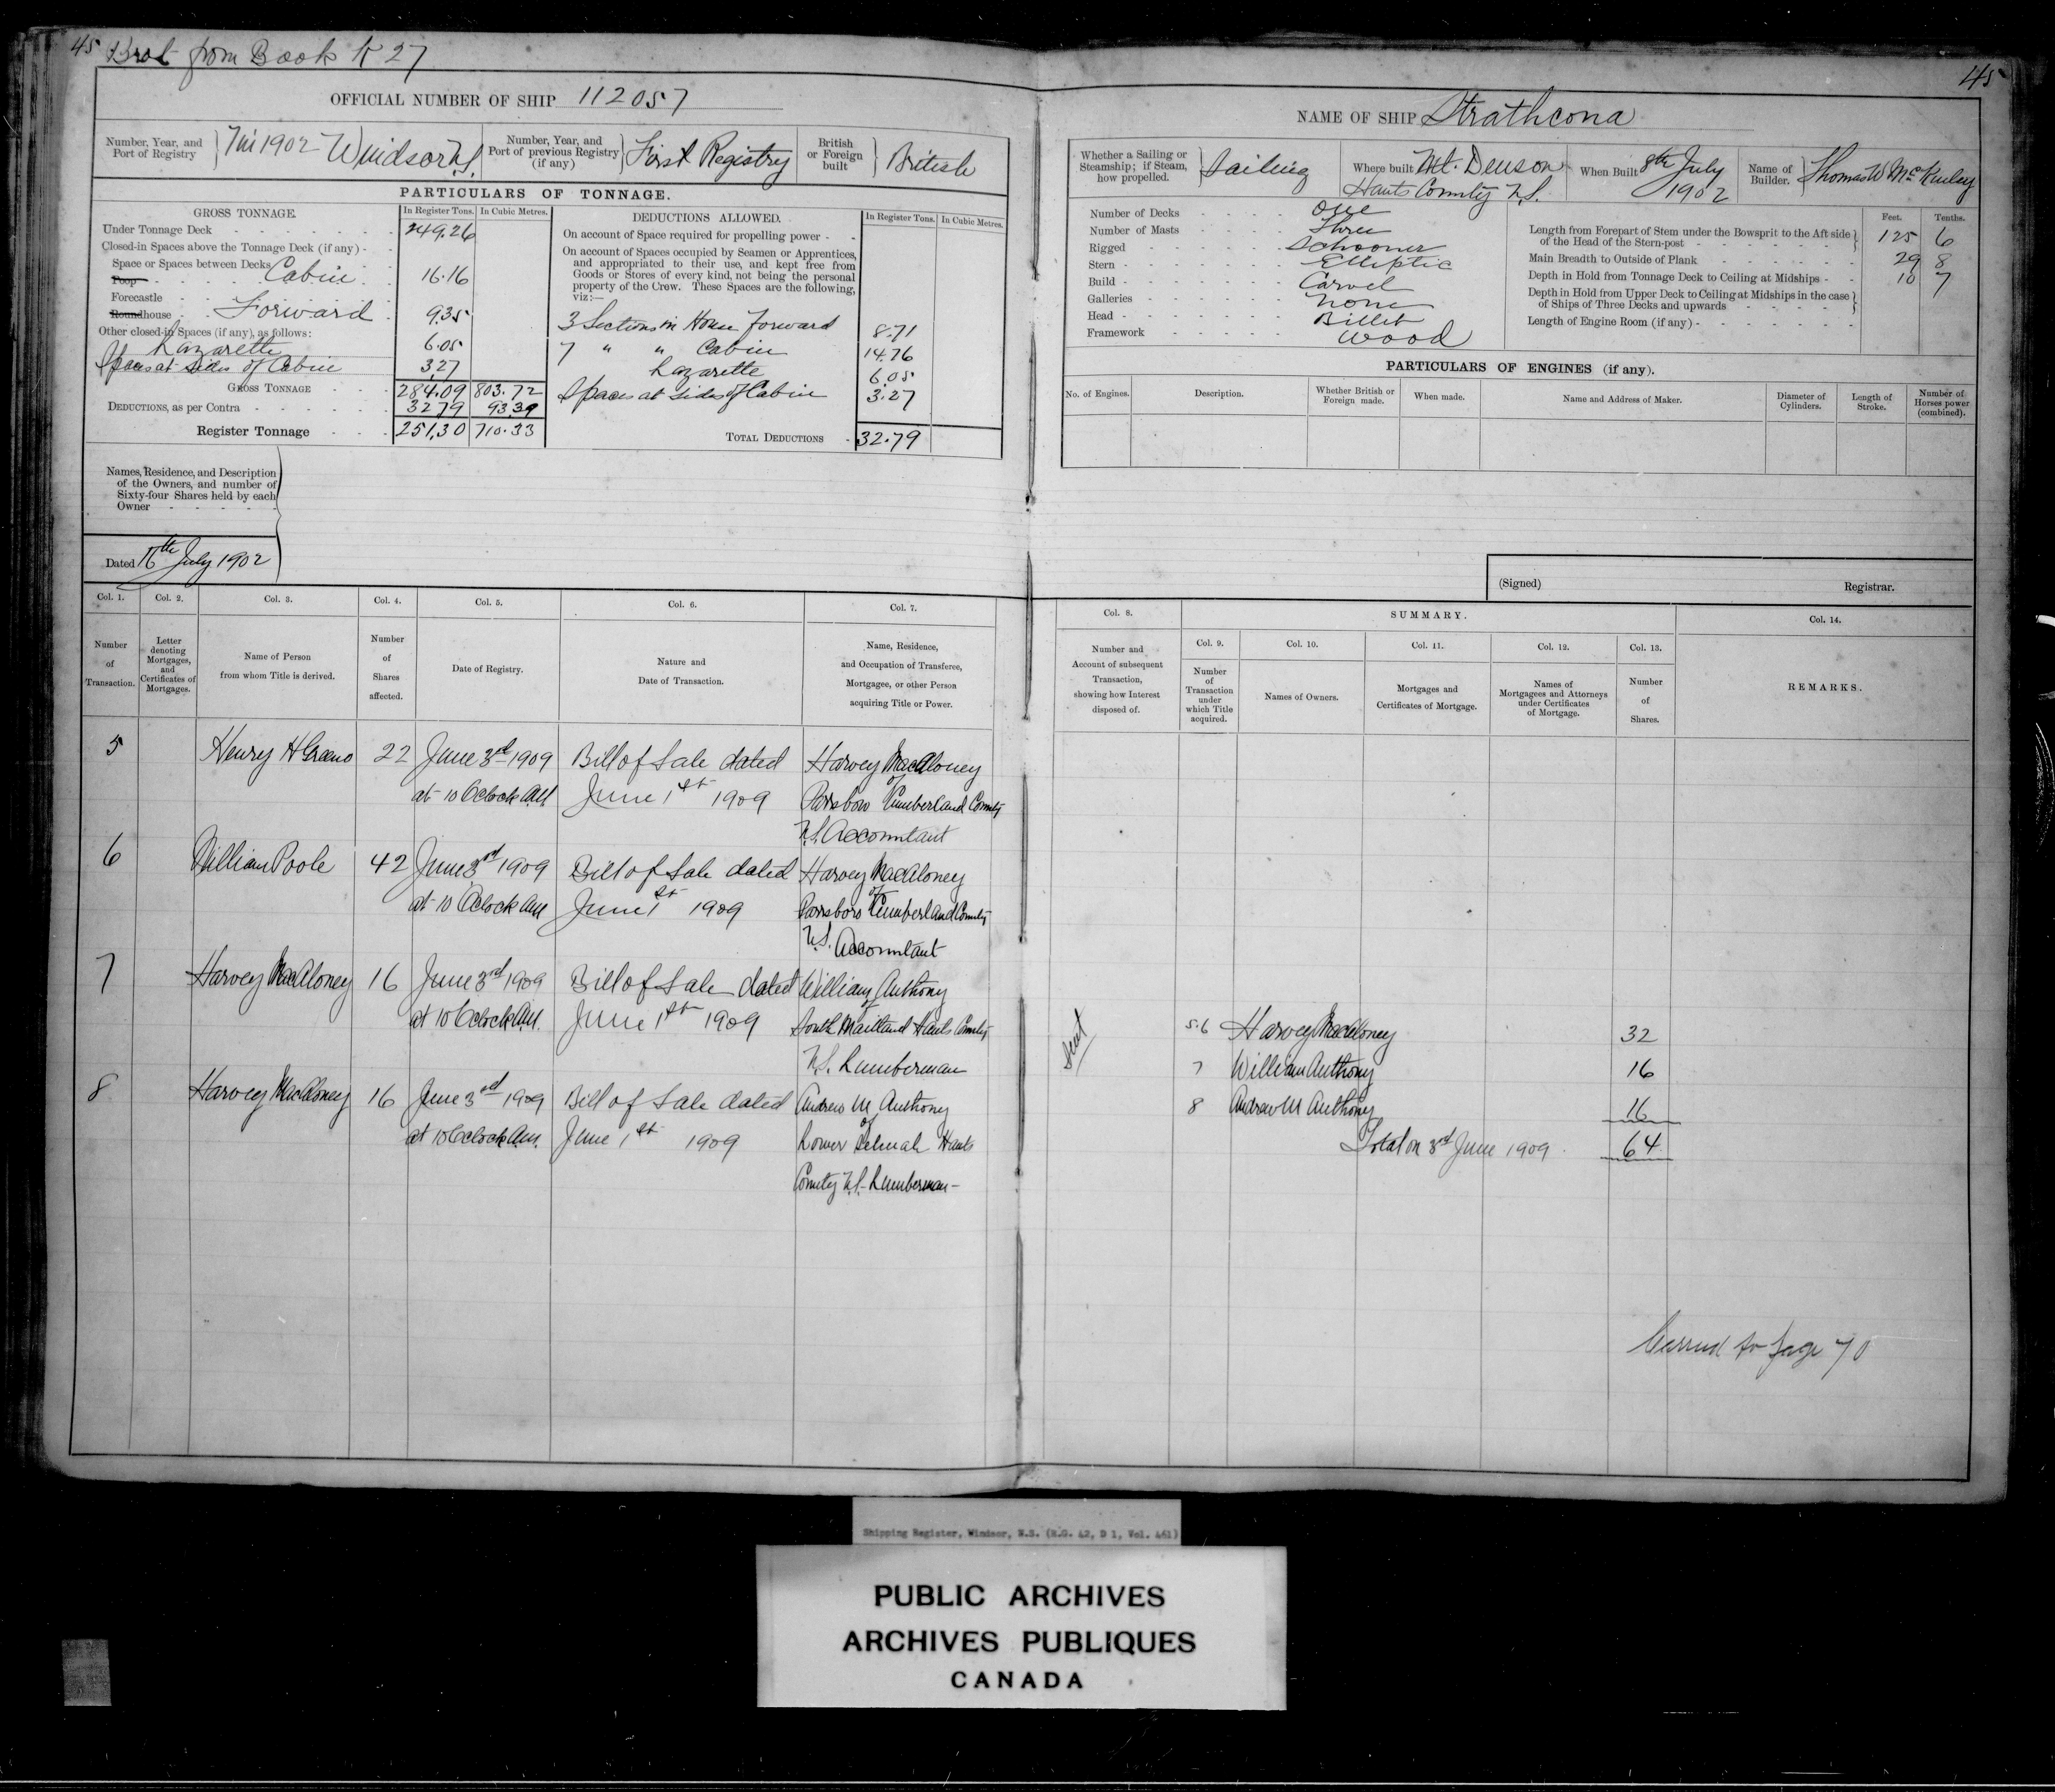 45 Brot from Book K 27
OFFICIAL NUMBER OF SHIP 112057
Number, Year, and Port of Registry } 7 in 1902 Windsor N.S.
Number, Year, and Port of previous Registry (if any) } First Registry
British or Foreign built } British
PARTICULARS OF TONNAGE.
GROSS TONNAGE. In Register Tons. In Cubic Metres.
Under Tonnage Deck 249.26
Closed-in Spaces above the Tonnage Deck (if any) -
Space or Spaces between Decks
Poop Cabin 16.16
Forecastle
Roundhouse Forward 9.35
Other closed-in Spaces (if any), as follows:
Lazarette 6.05
Spaces at sides of Cabin 3.27
GROSS TONNAGE 284.09 803.72
DEDUCTIONS, as per Contra 32.79 93.39
Register Tonnage 251.30 710.33
DEDUCTIONS ALLOWED. In Register Tons. In Cubic Metres.
On account of Space required for propelling power - -
On account of Spaces occupied by Seamen or Apprentices,
and appropriated to their use, and kept free from
Goods or Stores of every kind, not being the personal
property of the Crew. These Spaces are the following,
viz:—
3 Sections in House Forward 8.71
7 " " Cabin 14.76
Lazarette 6.05
Spaces at sides of Cabin 3.27
TOTAL DEDUCTIONS - 32.79
Names, Residence, and Description
of the Owners, and number of
Sixty-four Shares held by each
Owner
Dated 16th July 1902
Col. 1. Col. 2. Col. 3. Col. 4. Col. 5. Col. 6. Col. 7.
Number of Transaction.
Letter denoting Mortgages, and Certificates of Mortgages.
Name of Person from whom Title is derived.
Number of Shares affected.
Date of Registry.
Nature and Date of Transaction.
Name, Residence, and Occupation of Transferee, Mortgagee, or other Person acquiring Title or Power.
5 Henry H Greeno 22 June 3rd 1909 Bill of Sale dated Harvey MacAloney
of
at 10 Oclock AM June 1st 1909 Parrsboro Cumberland County
N.S. Accountant
6 William Poole 42 June 3rd 1909 Bill of Sale dated Harvey MacAloney
of
at 10 Oclock AM June 1st 1909 Parrsboro Cumberland County
N.S. Accountant
7 Harvey MacAloney 16 June 3rd 1909 Bill of Sale dated William Anthony
of
at 10 Oclock AM. June 1st 1909 South Maitland Hants County
N.S. Lumberman
8 Harvey MacAloney 16 June 3rd 1909 Bill of Sale dated Andrew M Anthony
of
at 10 Oclock AM. June 1st 1909 Lower Selmah Hants
County N.S. Lumberman -
45
NAME OF SHIP Strathcona
Whether a Sailing or Steamship; if Steam, how propelled. } Sailing
Where built Mt. Denson
Hants County N.S.
When Built 8th July
1902
Name of Builder. } Thomas W McKinley
Number of Decks One
Number of Masts Three
Rigged Schooner
Stern Elliptic
Build Carvel
Galleries None
Head Billet
Framework Wood
Feet. Tenths.
Length from Forepart of Stem under the Bowsprit to the Aft side
of the Head of the Stern-post 125 6
Main Breadth to Outside of Plank 29 8
Depth in Hold from Tonnage Deck to Ceiling at Midships - 10 7
Depth in Hold from Upper Deck to Ceiling at Midships in the case
of Ships of Three Decks and upwards
Length of Engine Room (if any) -
PARTICULARS OF ENGINES (if any).
No. of Engines. Description. Whether British or Foreign made. When made. Name and Address of Maker. Diameter of Cylinders. Length of Stroke. Number of Horses power (combined).
(Signed) Registrar.
Col. 8. SUMMARY. Col. 14.
Col. 9. Col. 10. Col. 11. Col. 12. Col. 13.
Number and Account of subsequent Transaction, showing how Interest disposed of.
Number of Transaction under which Title acquired.
Names of Owners.
Mortgages and Certificates of Mortgage.
Names of Mortgagees and Attorneys under Certificates of Mortgage.
Number of Shares.
REMARKS.
Sent
5.6 Harvey MacAloney 32
7 William Anthony 16
8 Andrew M Anthony 16
Total on 3rd June 1909. 64
Carried to page 70
Shipping Register, Windsor, N.S. (R.G. 42, D 1, Vol. 461)
PUBLIC ARCHIVES
ARCHIVES PUBLIQUES
CANADA